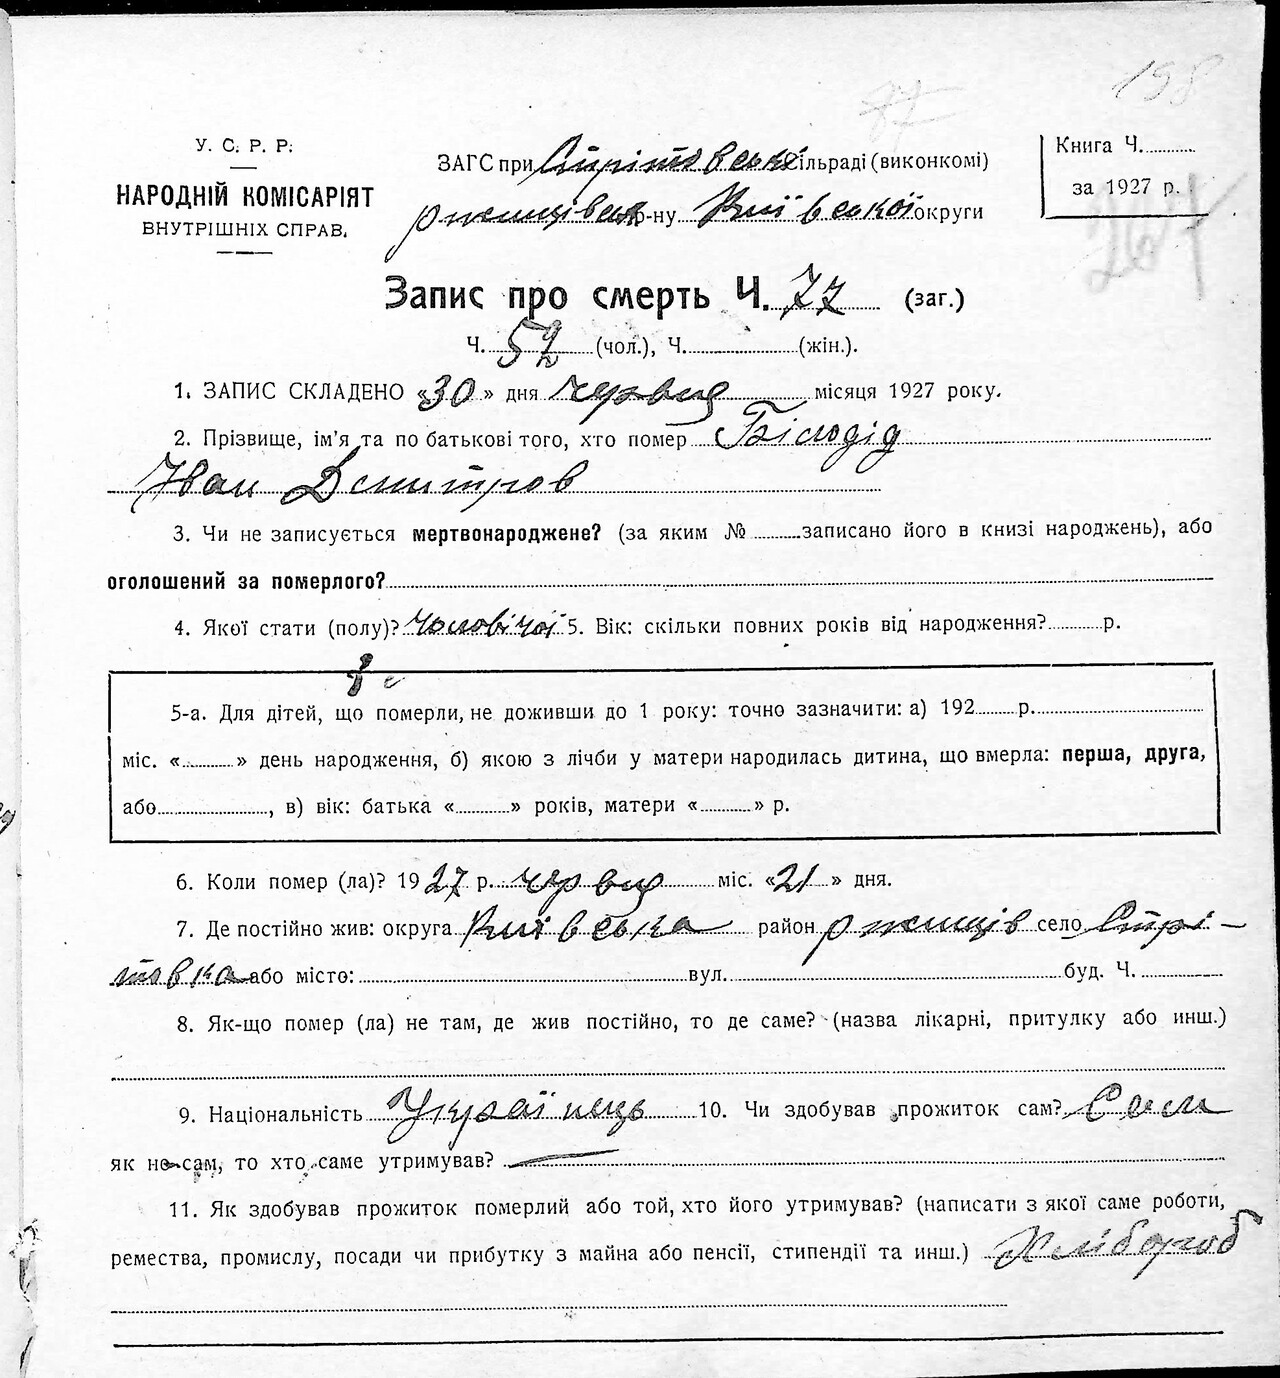 198
77
У. С. Р. Р.
НАРОДНІЙ КОМІСАРІЯТ
ВНУТРІШНІХ СПРАВ.
ЗАГС при Стрітовській сільраді (виконкомі)
Ржищівськ р-ну Київської округи
Книга Ч.
за 1927 р.
267
Запис про смерть Ч. 77 (заг.)
Ч. 52 (чол.), Ч. (жін.).
1. ЗАПИС СКЛАДЕНО «30» дня червця місяця 1927 року.
2. Прізвище, ім'я та по батькові того, хто помер Білодід
Іван Дмитров
3. Чи не записується мертвонароджене? (за яким № записано його в книзі народжень), або
оголошений за померлого?
4. Якої стати (полу)? чоловічої 5. Вік: скільки повних років від народження? р.
5-а. Для дітей, що померли, не доживши до 1 року: точно зазначити: а) 192 р.
міс. « » день народження, б) якою з лічби у матери народилась дитина, що вмерла: перша, друга,
або , в) вік: батька « » років, матери « » р.
6. Коли помер (ла)? 1927 р. червця міс. «21» дня.
7. Де постійно жив: округа Київська район Ржищів село Стрі-
товка або місто: вул. буд. Ч.
8. Як-що помер (ла) не там, де жив постійно, то де саме? (назва лікарні, притулку або инш.)
9. Національність Українець 10. Чи здобував прожиток сам? Сам
як не сам, то хто саме утримував? —
11. Як здобував прожиток померлий або той, хто його утримував? (написати з якої саме роботи,
ремества, промислу, посади чи прибутку з майна або пенсії, стипендії та инш.) Хлібороб